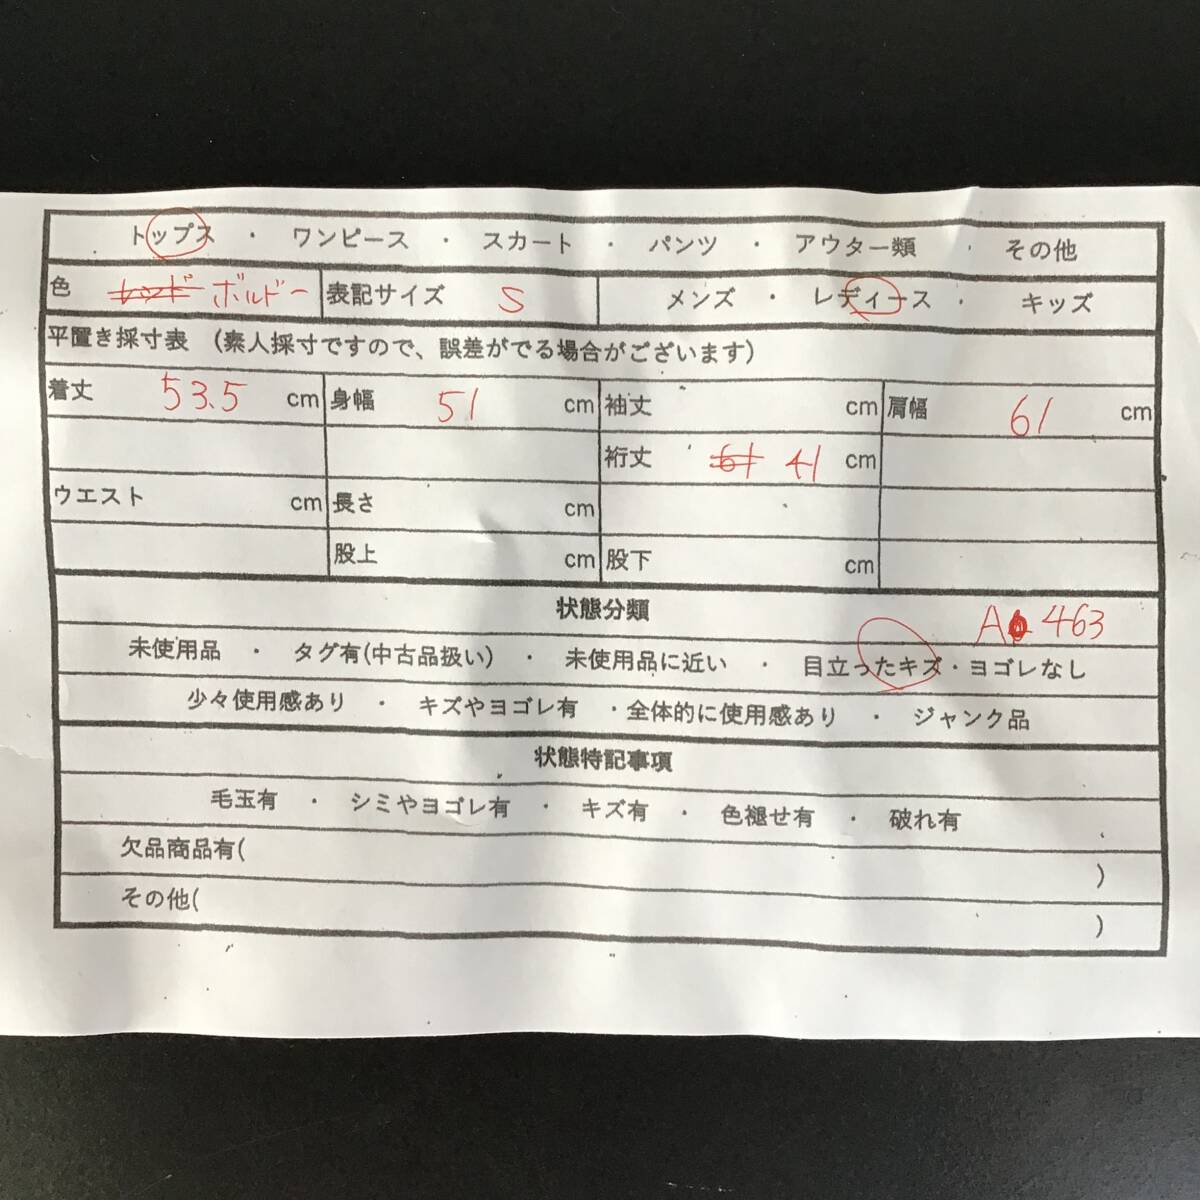 トップス ・ ワンピース ・ スカート ・ パンツ ・ アウター類 ・ その他
色 レッド ボルドー 表記サイズ S メンズ ・ レディース ・ キッズ
平置き採寸表 (素人採寸ですので、誤差がでる場合がございます)
着丈 53.5 cm 身幅 51 cm 袖丈 cm 肩幅 61 cm
裄丈 61 41 cm
ウエスト cm 長さ cm
股上 cm 股下 cm
状態分類 A 463
未使用品 ・ タグ有(中古品扱い) ・ 未使用品に近い ・ 目立ったキズ・ヨゴレなし
少々使用感あり ・ キズやヨゴレ有 ・全体的に使用感あり ・ ジャンク品
状態特記事項
毛玉有 ・ シミやヨゴレ有 ・ キズ有 ・ 色褪せ有 ・ 破れ有
欠品商品有( )
その他( )